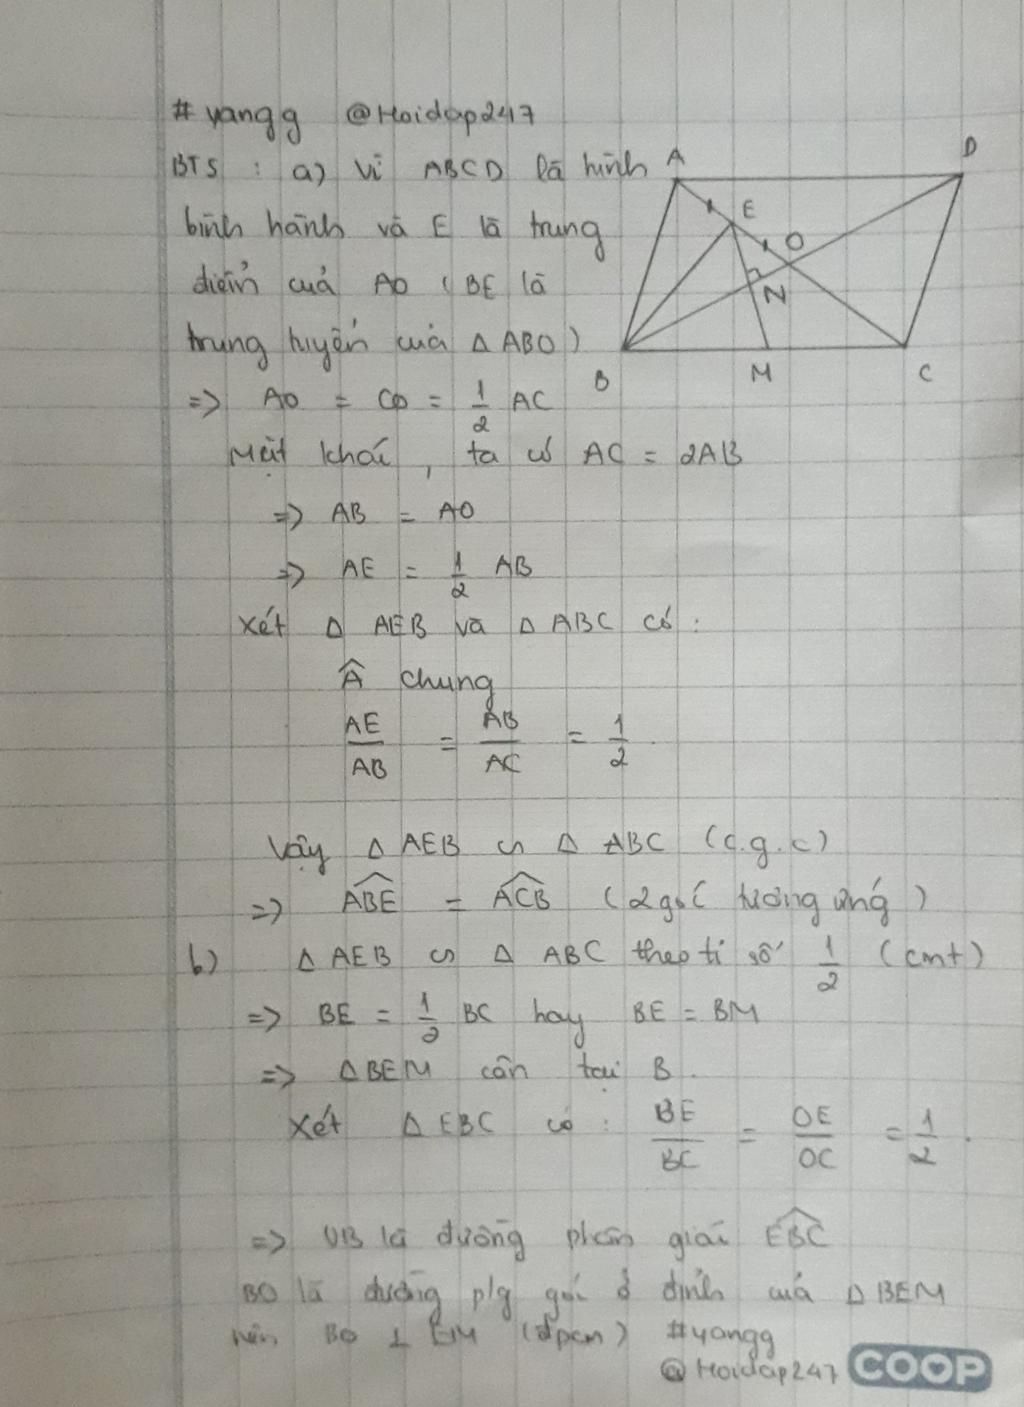 # yangg @Hoidap247
BT5 : a) Vì ABCD là hình
bình hành và E là trung
điểm của AO (BE là
trung tuyến của Δ ABO)
=> AO = CO = 1/2 AC
Mặt khác, ta có AC = 2AB
=> AB = AO
=> AE = 1/2 AB
Xét Δ AEB và Δ ABC có :
Â chung
AE/AB = AB/AC = 1/2
Vậy Δ AEB ∽ Δ ABC (c.g.c)
=> ABE^ = ACB^ (2 góc tương ứng)
b) Δ AEB ∽ Δ ABC theo tỉ số 1/2 (cmt)
=> BE = 1/2 BC hay BE = BM
=> ΔBEM cân tại B.
Xét Δ EBC có : BE/BC = OE/OC = 1/2.
=> OB là đường phân giác EBC^
BO là đường p/g góc ở đỉnh của Δ BEM
nên BO ⊥ EM (đpcm) #yangg
@Hoidap247 COOP
A
D
E
O
N
B
M
C